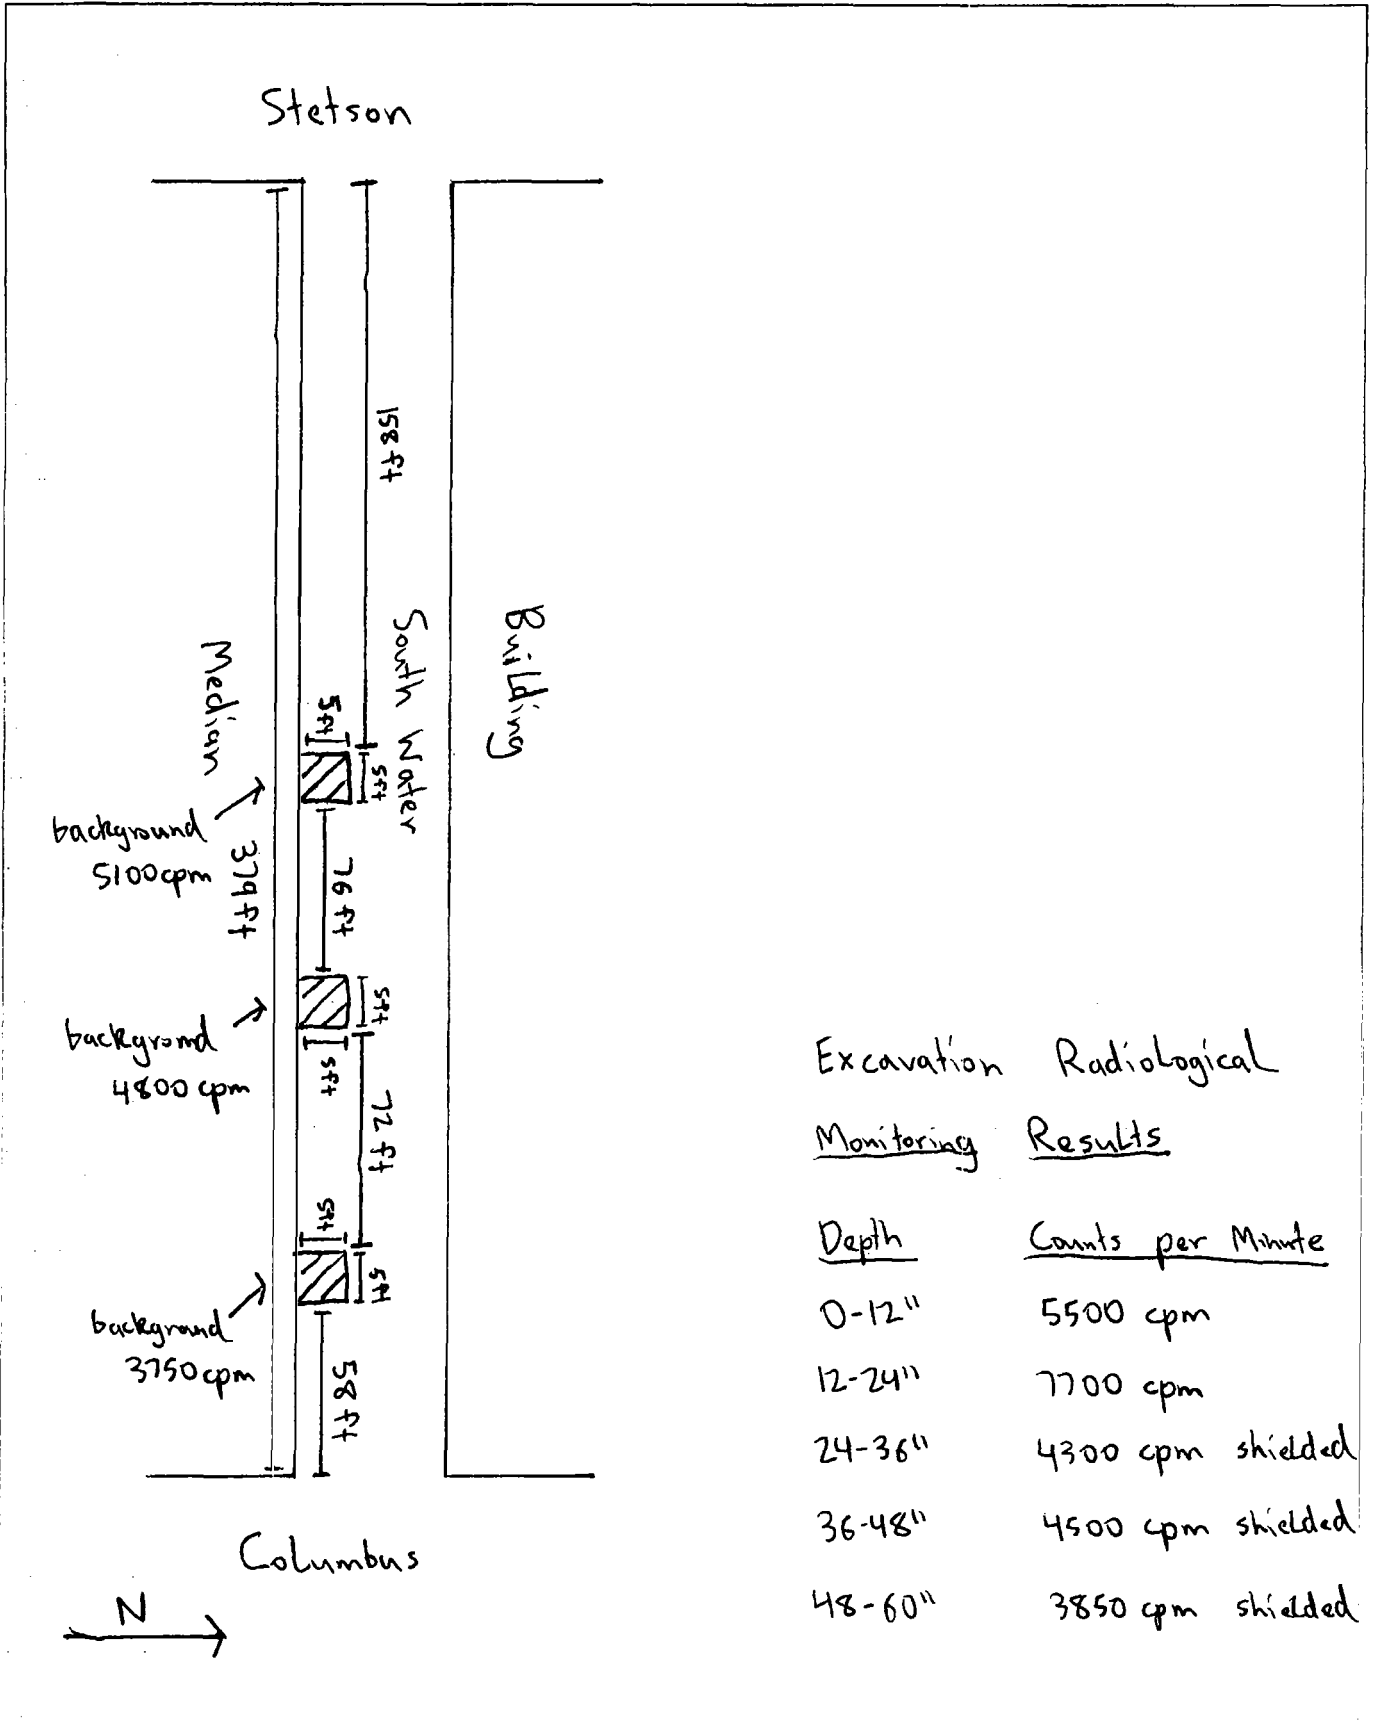 Stetson
158 ft
Building
South Water
Median
379 ft
5ft
5ft
background
5100 cpm
76 ft
5ft
5ft
background
4800 cpm
72 ft
5ft
5ft
background
3750 cpm
58 ft
Columbus
N
Excavation Radiological
Monitoring Results
Depth Counts per Minute
0-12" 5500 cpm
12-24" 7700 cpm
24-36" 4300 cpm shielded
36-48" 4500 cpm shielded
48-60" 3850 cpm shielded